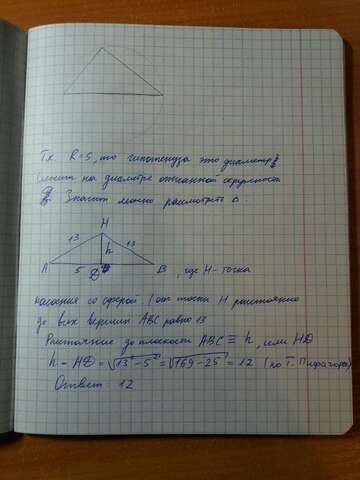 Т.к. R=5, то гипотенуза это диаметр
лежит на диаметре описанной окружности
Значит можно расмотреть Δ.
H
13 h 13
A 5 D B, где H-точка
касания со сферой. (от точки H расстояние
до всех вершин ABC равно 13
Расстояние до плоскости ABC ≡ h, или HD
h = HD = √13²-5² = √169-25 = 12 (по т. Пифагора)
Ответ: 12